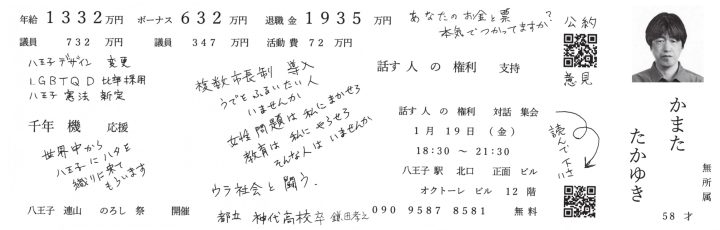 年給 1332万円 ボーナス 632万円 退職金 1935万円
議員 732万円 議員 347万円 活動費 72万円
八王子デザイン 変更
LGBTQD 比率採用
八王子 憲法 新定
千年 機 応援
世界中から
八王子にハタを
織りに来て
もらいます
八王子 連山 のろし 祭 開催
複数市長制 導入
うでをふるいたい人
いませんか
女性問題は私にまかせろ
教育は 私にやらせろ
そんな人は いませんか
ウラ社会と闘う.
都立 神代高校卒 鎌田孝之
あなたのお金と票
本気でつかってますか?
話す 人 の 権利 支持
話す 人 の 権利 対話 集会
1月19日(金)
18:30〜21:30
八王子駅 北口 正面 ビル
オクトーレ ビル 12階
090 9587 8581 無料
公約
意見
読んで下さい
かまた
たかゆき
無所属
58才